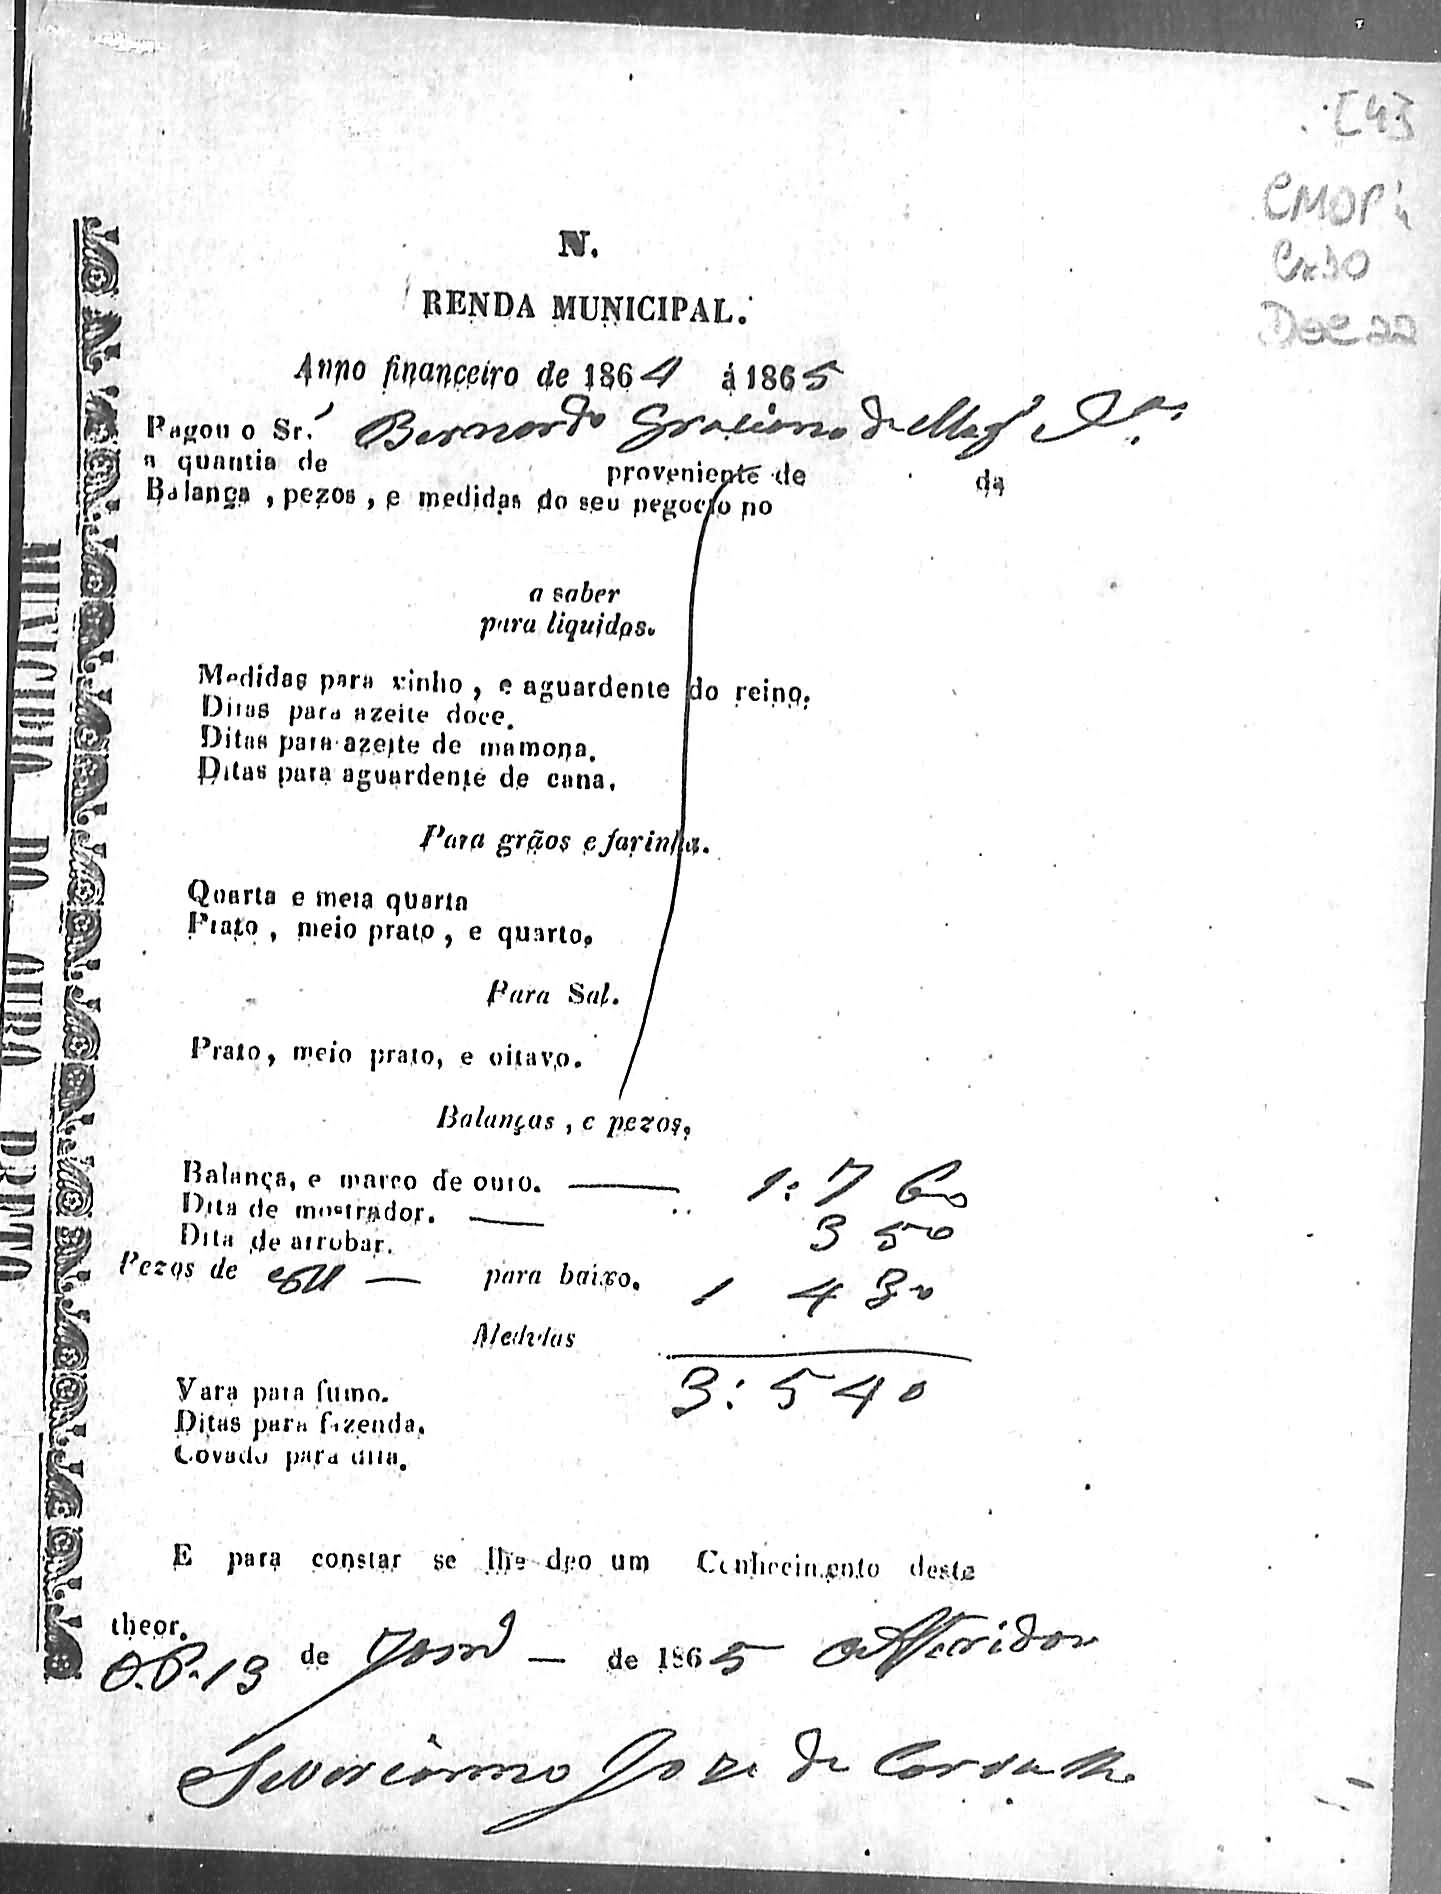 [43
CMOP
Cx 30
Doc 22
N.
RENDA MUNICIPAL.
Anno financeiro de 1864 á 1865
Pagou o Sr. Bernardo Graciano de Mag.
a quantia de proveniente de da
Balança, pezos, e medidas do seu negocio no
a saber
para liquidos.
Medidas para vinho, e aguardente do reino.
Ditas para azeite doce.
Ditas para azeite de mamona.
Ditas para aguardente de cana.
Para grãos e farinha.
Quarta e meia quarta
Prato, meio prato, e quarto.
Para Sal.
Prato, meio prato, e oitavo.
Balanças, e pezos.
Balança, e marco de ouro. — 1:760
Dita de mostrador. — 350
Dita de arrobar.
Pezos de — para baixo. 1 430
Medidas
3:540
Vara para fumo.
Ditas para fazenda.
Covado para dita.
E para constar se lhe deo um Conhecimento deste
theor.
O. P. 13 de — de 1865 Afferidor
Severianno Joze de Carvalho
MUNICIPIO DO OURO PRETO